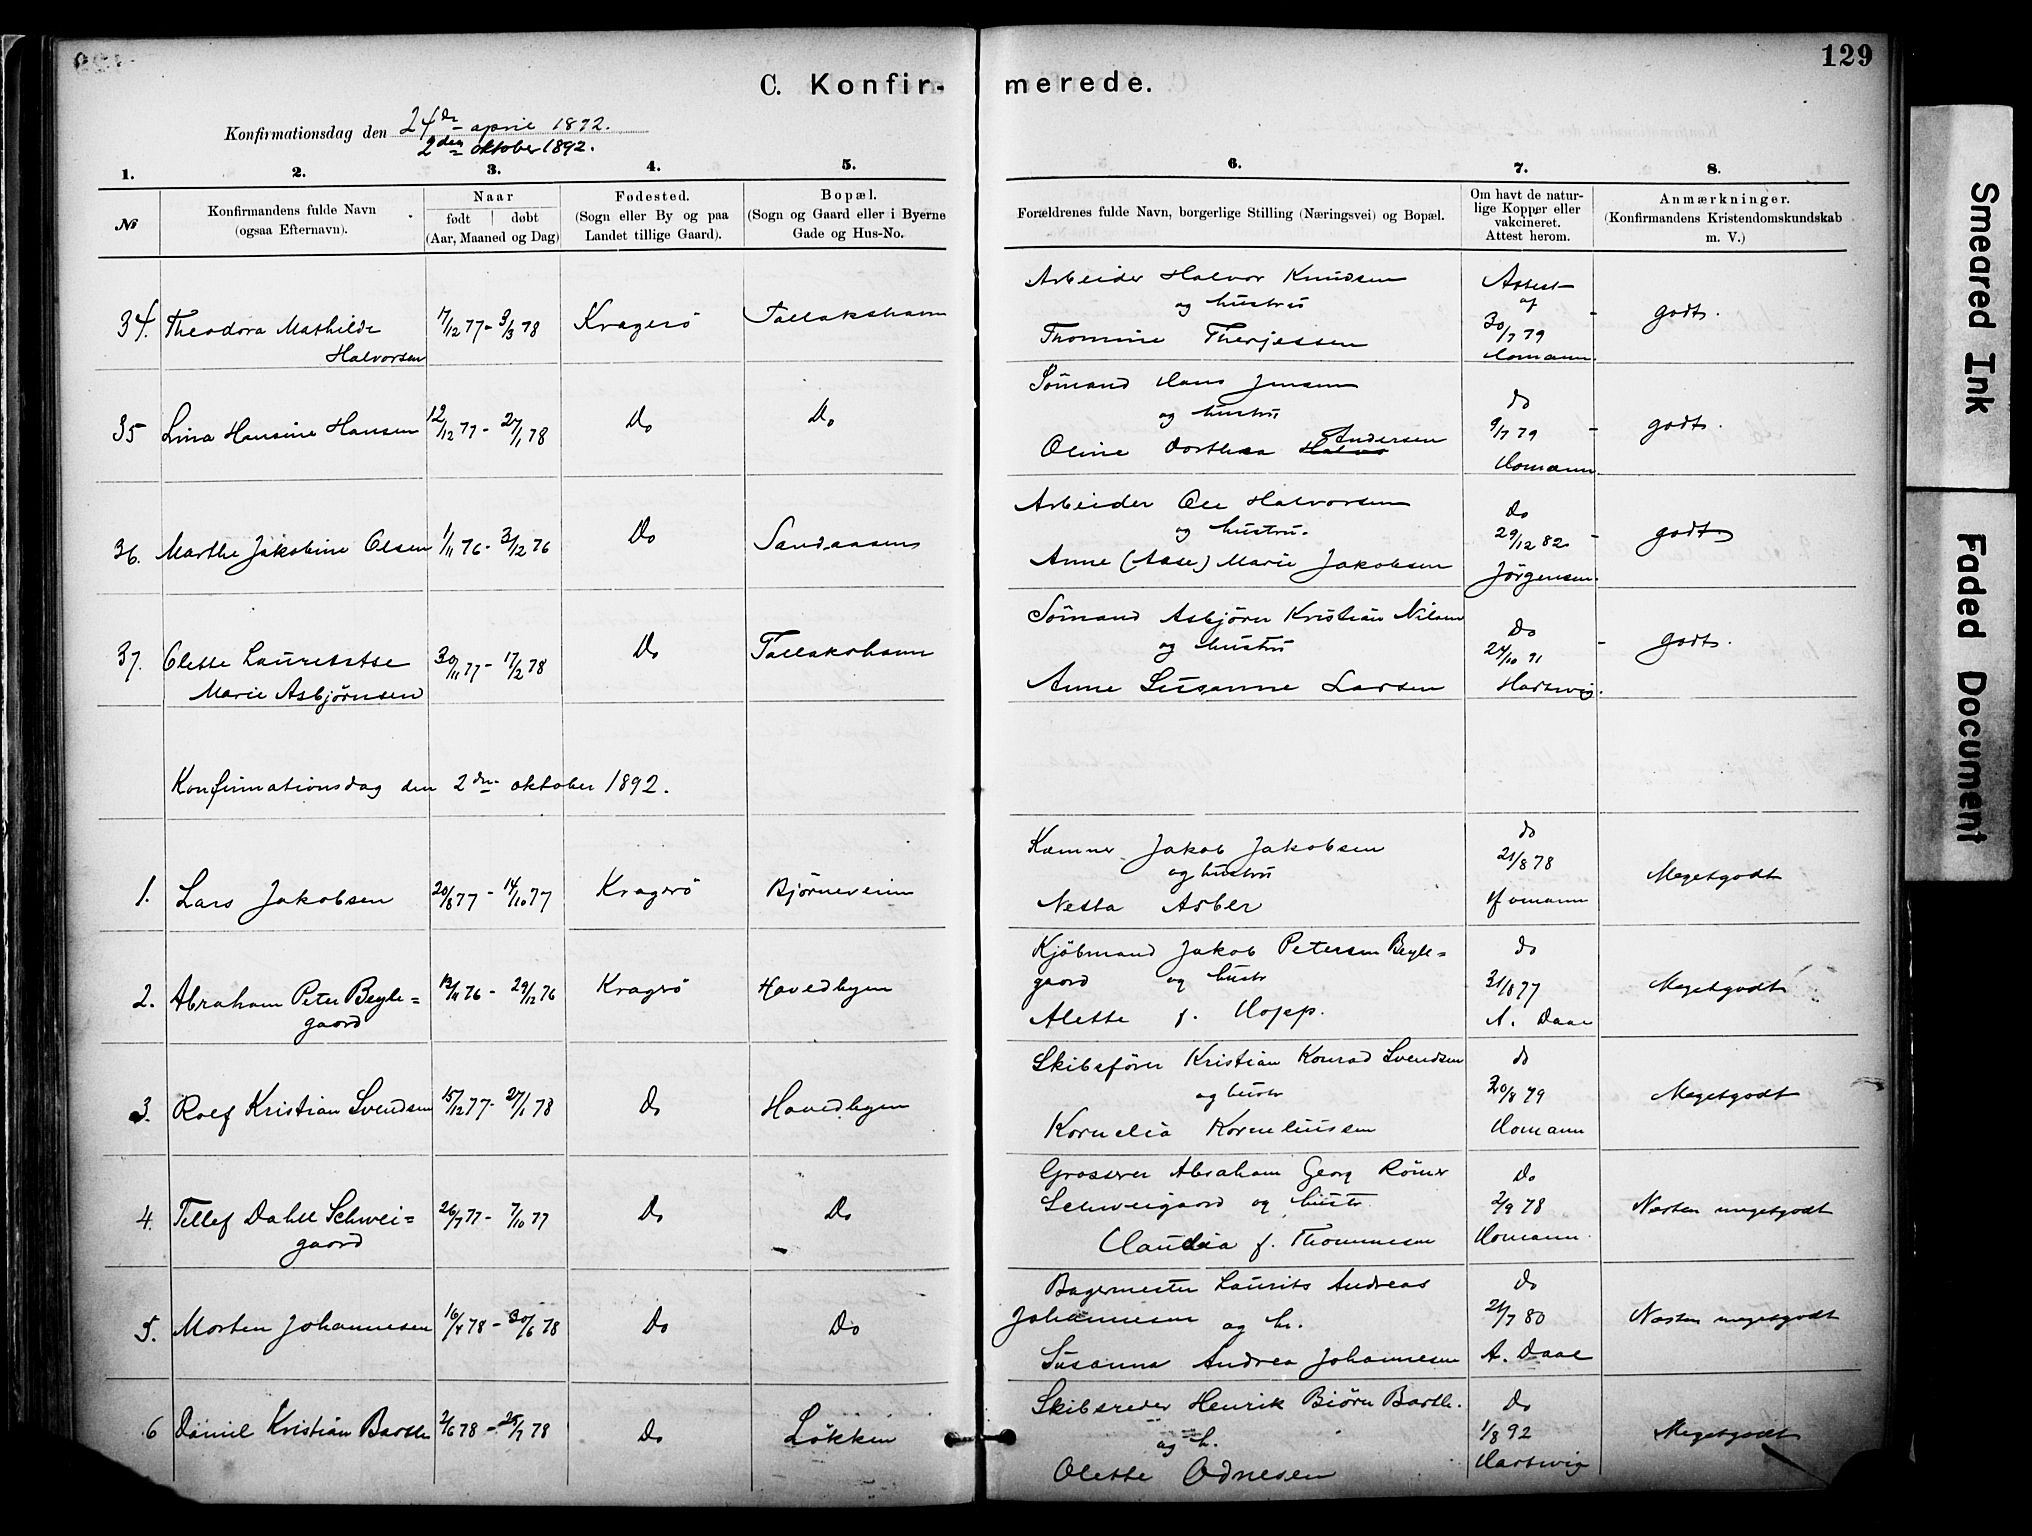 129
C. Konfir- merede.
Konfirmationsdag den 24de april 1892.
2den oktober 1892.
1. 2. 3. 4. 5. 6. 7. 8.
№
Konfirmandens fulde Navn
(ogsaa Efternavn).
Naar
født | døbt
(Aar, Maaned og Dag)
Fødested.
(Sogn eller By og paa
Landet tillige Gaard).
Bopæl.
(Sogn og Gaard eller i Byerne
Gade og Hus-No.
Forældrenes fulde Navn, borgerlige Stilling (Næringsvei) og Bopæl.
Om havt de natur-
lige Kopper eller
vakcineret.
Attest herom.
Anmærkninger.
(Konfirmandens Kristendomskundskab
m. V.)
34. Theodora Mathilde
Halvorsen
17/12 77 - 3/3 78
Kragerø
Tallakshavn
Arbeider Halvor Knudsen
og hustru
Thomine Therjessen
Attest
af
30/7 79
Homann.
godt.
35 Lina Hansine Hansen
12/12 77 - 27/1 78
Do
Do
Sømand Hans Jensen
og hustru
Oline Dorthea Halvo Andersen
do
9/7 79
Homann
godt.
36. Marthe Jakobine Olsen
1/11 76 - 3/12 76
Do
Sandaasen
Arbeider Ole Halvorsen
og hustru.
Anne (Aase) Marie Jakobsen
do
29/12 82
Jørgensen.
godt
37. Olette Lauretstse
Marie Asbjørnsen
30/11 77 - 17/2 78
Do
Tallakshavn
Sømand Asbjørn Kristian Nilsen
og hustru
Anne Susanne Larsen
Do
24/10 91
Hartwig.
godt.
Konfirmationsdag den 2den oktober 1892.
1. Lars Jakobsen
20/8 77 - 14/10 77
Kragerø
Bjørneveien
Kæmner Jakob Jakobsen
og hustru
Netta Asber
do
21/8 78
Homann
Megetgodt
2. Abraham Peter Beyle=
gaard
12/11 76 - 29/12 76
Kragerø
Hovedbyen
Kjøbmand Jakob Petersen Beyle=
gaard og hustr
Alette f. Hopp.
do
31/8 77
A. Daae
Megetgodt
3. Rolf Kristian Svendsen
15/12 77 - 27/1 78
Do
Hovedbyen
Skibsfører Kristian Konrad Svendsen
og hustr
Kornelia Korneliussen
do
20/8 79
Homann
Megetgodt
4. Tellef Dahll Schwei=
gaard
26/7 77 - 7/10 77
Do
Do
Grosserer Abraham Georg Römer
Schweigaard og hustr.
Claudia f. Thommesen
Do
2/9 78
Homann.
Næsten megetgodt
5. Morten Johannesen
16/4 78 - 30/6 78
Do
Do
Bagermester Laurits Andreas
Johannesen og h.
Susanna Andrea Johannesen
Do
21/7 80
A. Daae
Næsten megetgodt
6 Daniel Kristian Barth
2/6 78 - 25/7 78
Do
Løkken
Skibsreder Henrik Biørn Barth.
og h.
Olette Odnesen
Do
1/8 92
Hartwig
Megetgodt
Smeared Ink
Faded Document